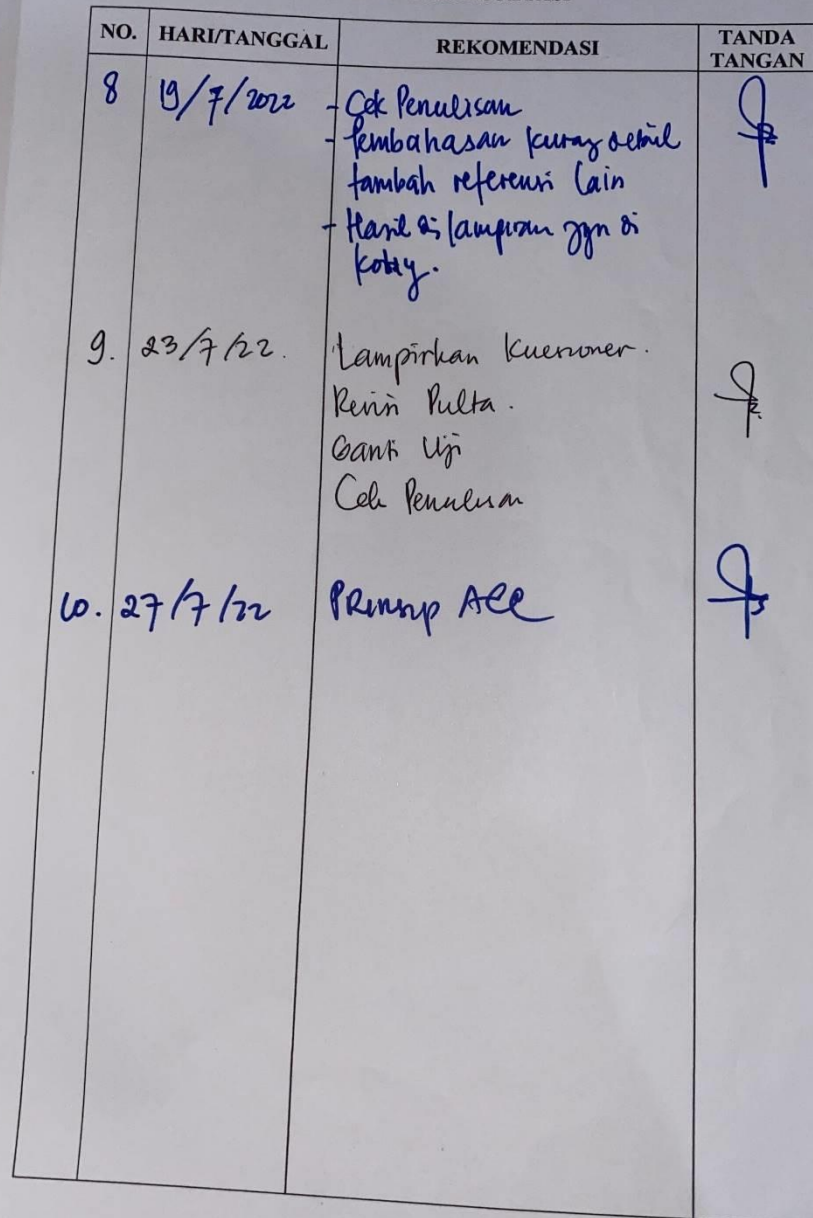 NO. HARI/TANGGAL REKOMENDASI TANDA TANGAN
8 19/7/2022 - Cek Penulisan
- Pembahasan kurang detail
tambah referensi lain
- Hasil di lampiran jgn di
9. 23/7/22. Lampirkan Kuesioner.
Revisi
Ganti Uji
Cek Penulisan
10. 27/7/22 Prinsip ACC